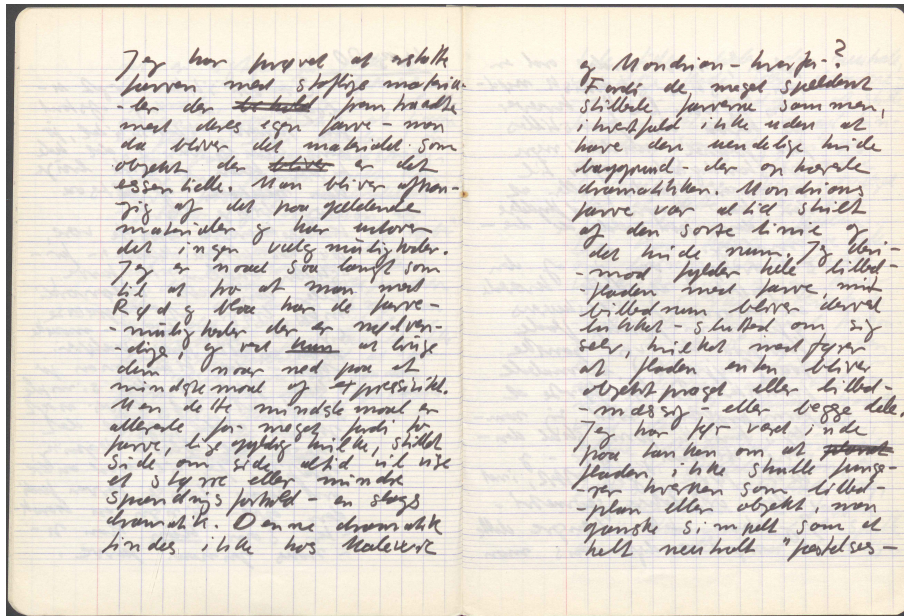 Jeg har prøvet at erstatte
farven med stoflige materia-
-ler der behold fremtraadte
med deres egen farve – men
da bliver det materialet som
objekt der bliver er det
essentielle. Man bliver afhæn-
gig af det paagældende
materialer og har udover
det ingen valgmuligheder.
Jeg er naaet saa langt som
til at se at man med
Rød og blaa har de farve-
-muligheder der er nødven-
-dige, og ved kun at bruge
dem naar ned paa et
mindstemaal af expressivitet.
Men dette mindstemaal er
allerede for meget fordi to
farver, ligegyldig hvilke, stillet
side om side altid vil vise
et større eller mindre
spændingsforhold – en slags
dramatik. Denne dramatik
findes ikke hos Malevic
og Mondrian – hvorfor?
Fordi de, meget spændende
stillede farverne sammen,
ihvertfald ikke uden at
have den uendelige hvide
baggrund – der ophævede
dramatikken. Mondrians
farve var altid skilt
af den sorte linie og
det hvide rum. Jeg deri-
-mod fylder hele billed-
-fladen med farve, mit
billedrum bliver derved
lukket – sluttet om sig
selv, hvilket medfører
at fladen enten bliver
objektpræget eller billed-
-mæssig – eller begge dele.
Jeg har før været inde
paa tanken om, at
fladen ikke skulle funge-
-rer hverken som billed-
-plan eller objekt, men
ganske simpelt som et
helt neutralt "fæstelses-